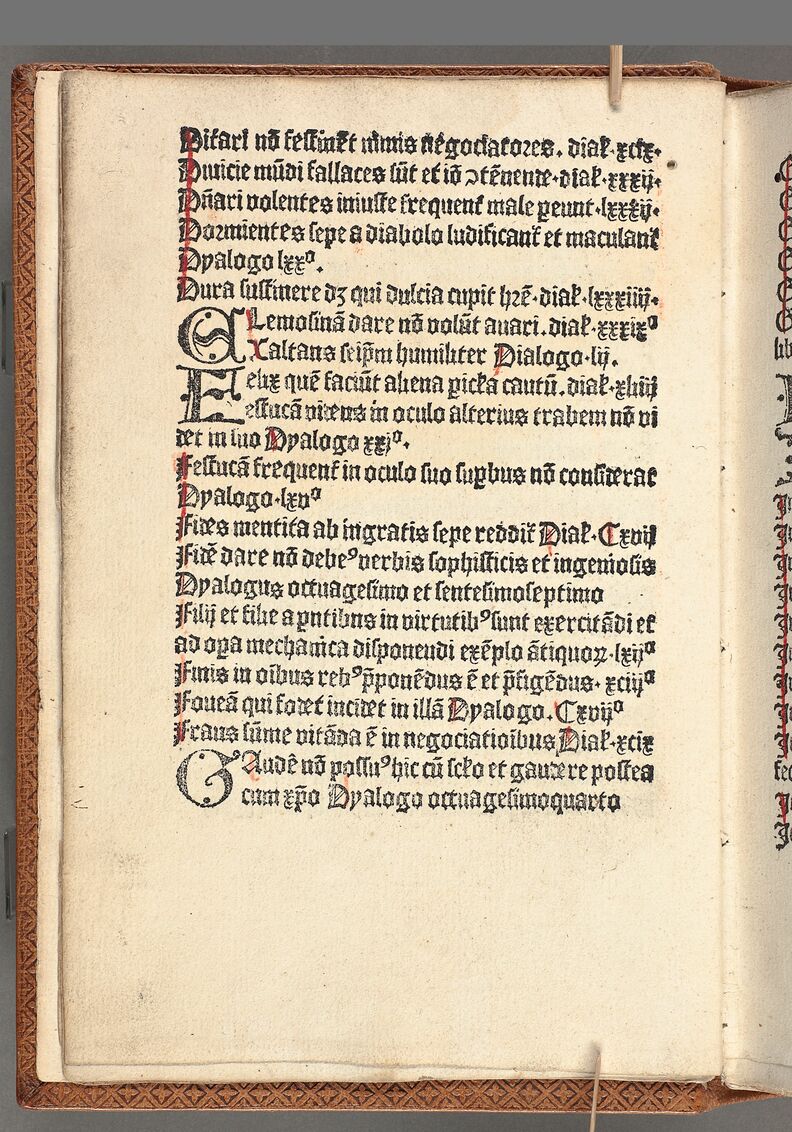 Ditari nō festinēt nimis negociatores. dial̃ xcix.
Diuicie mūdi fallaces sūt et iō ꝯtēnende. dial̃ xxxij.
Dñari volentes iniuste frequent̃ male ꝑeunt. lxxxij.
Dormientes sepe a diabolo ludificant̃ et maculant̃
Dyalogo lxxº.
Dura sustinere dꝫ qui dulcia cupit hr̄e. dial̃. lxxxiiij.
ELemosinā dare nō volūt auari. dial̃ xxxixº
Exaltans seip̄m humiliter Dialogo. lij.
Felix quē faciūt aliena ꝑicl̃a cautū. dial̃. xliiij
Festucā videns in oculo alterius trabem nō vi
det in suo Dyalogo xxjº.
Festucā frequent̃ in oculo suo suꝑbus nō considerat
Dyalogo. lxvº
Fides mentita ab ingratis sepe reddit̃ Dial̃. Cxvij
Fidē dare nō debeꝰ verbis sophisticis et ingeniosis
Dyalogus octuagesimo et sentesimoseptimo
Filij et filie a pñtibus in virtutibꝰ sunt exercitādi et
ad oꝑa mechanica disponendi exēplo ātiquoꝝ. lxijº
Finis in oībus rebꝰ p̄ponēdus ē et p̄figēdus. xciijº
Foueā qui fodet incidet in illā Dyalogo. Cxvijº
Fraus sūme vitāda ē in negociatioībus Dial̃. xcix
GAudē nō possuꝰ hic cū scl̃o et gaudere postea
cum xp̄o Dyalogo octuagesimoquarto